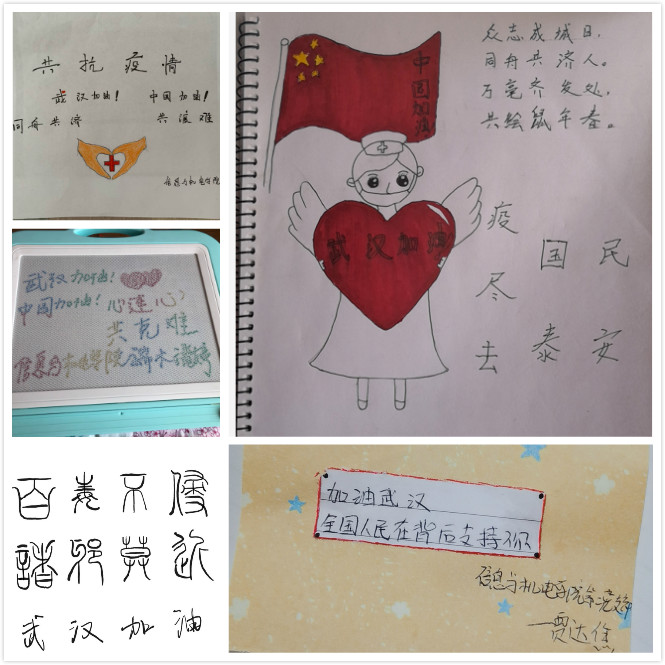 共抗疫情
武汉加油! 中国加油!
同舟共济 共渡难
信息与机电学院
中国加油
武汉加油
众志成城日,
同舟共济人。
万毫齐发处,
共绘鼠年春。
疫尽去
国泰
民安
武汉加油!
中国加油! 心连心
共克难
信息与机电学院
百毒不侵
诸邪莫近
武汉加油
加油武汉
全国人民在背后支持你
信息与机电学院